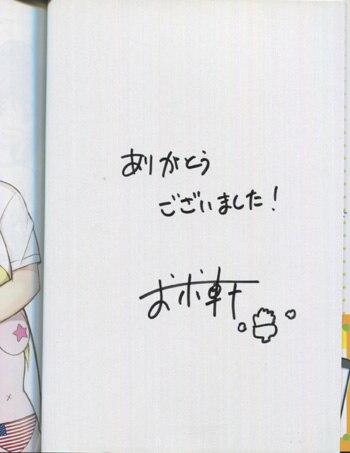 ありがとう
ございました!
おボ軒